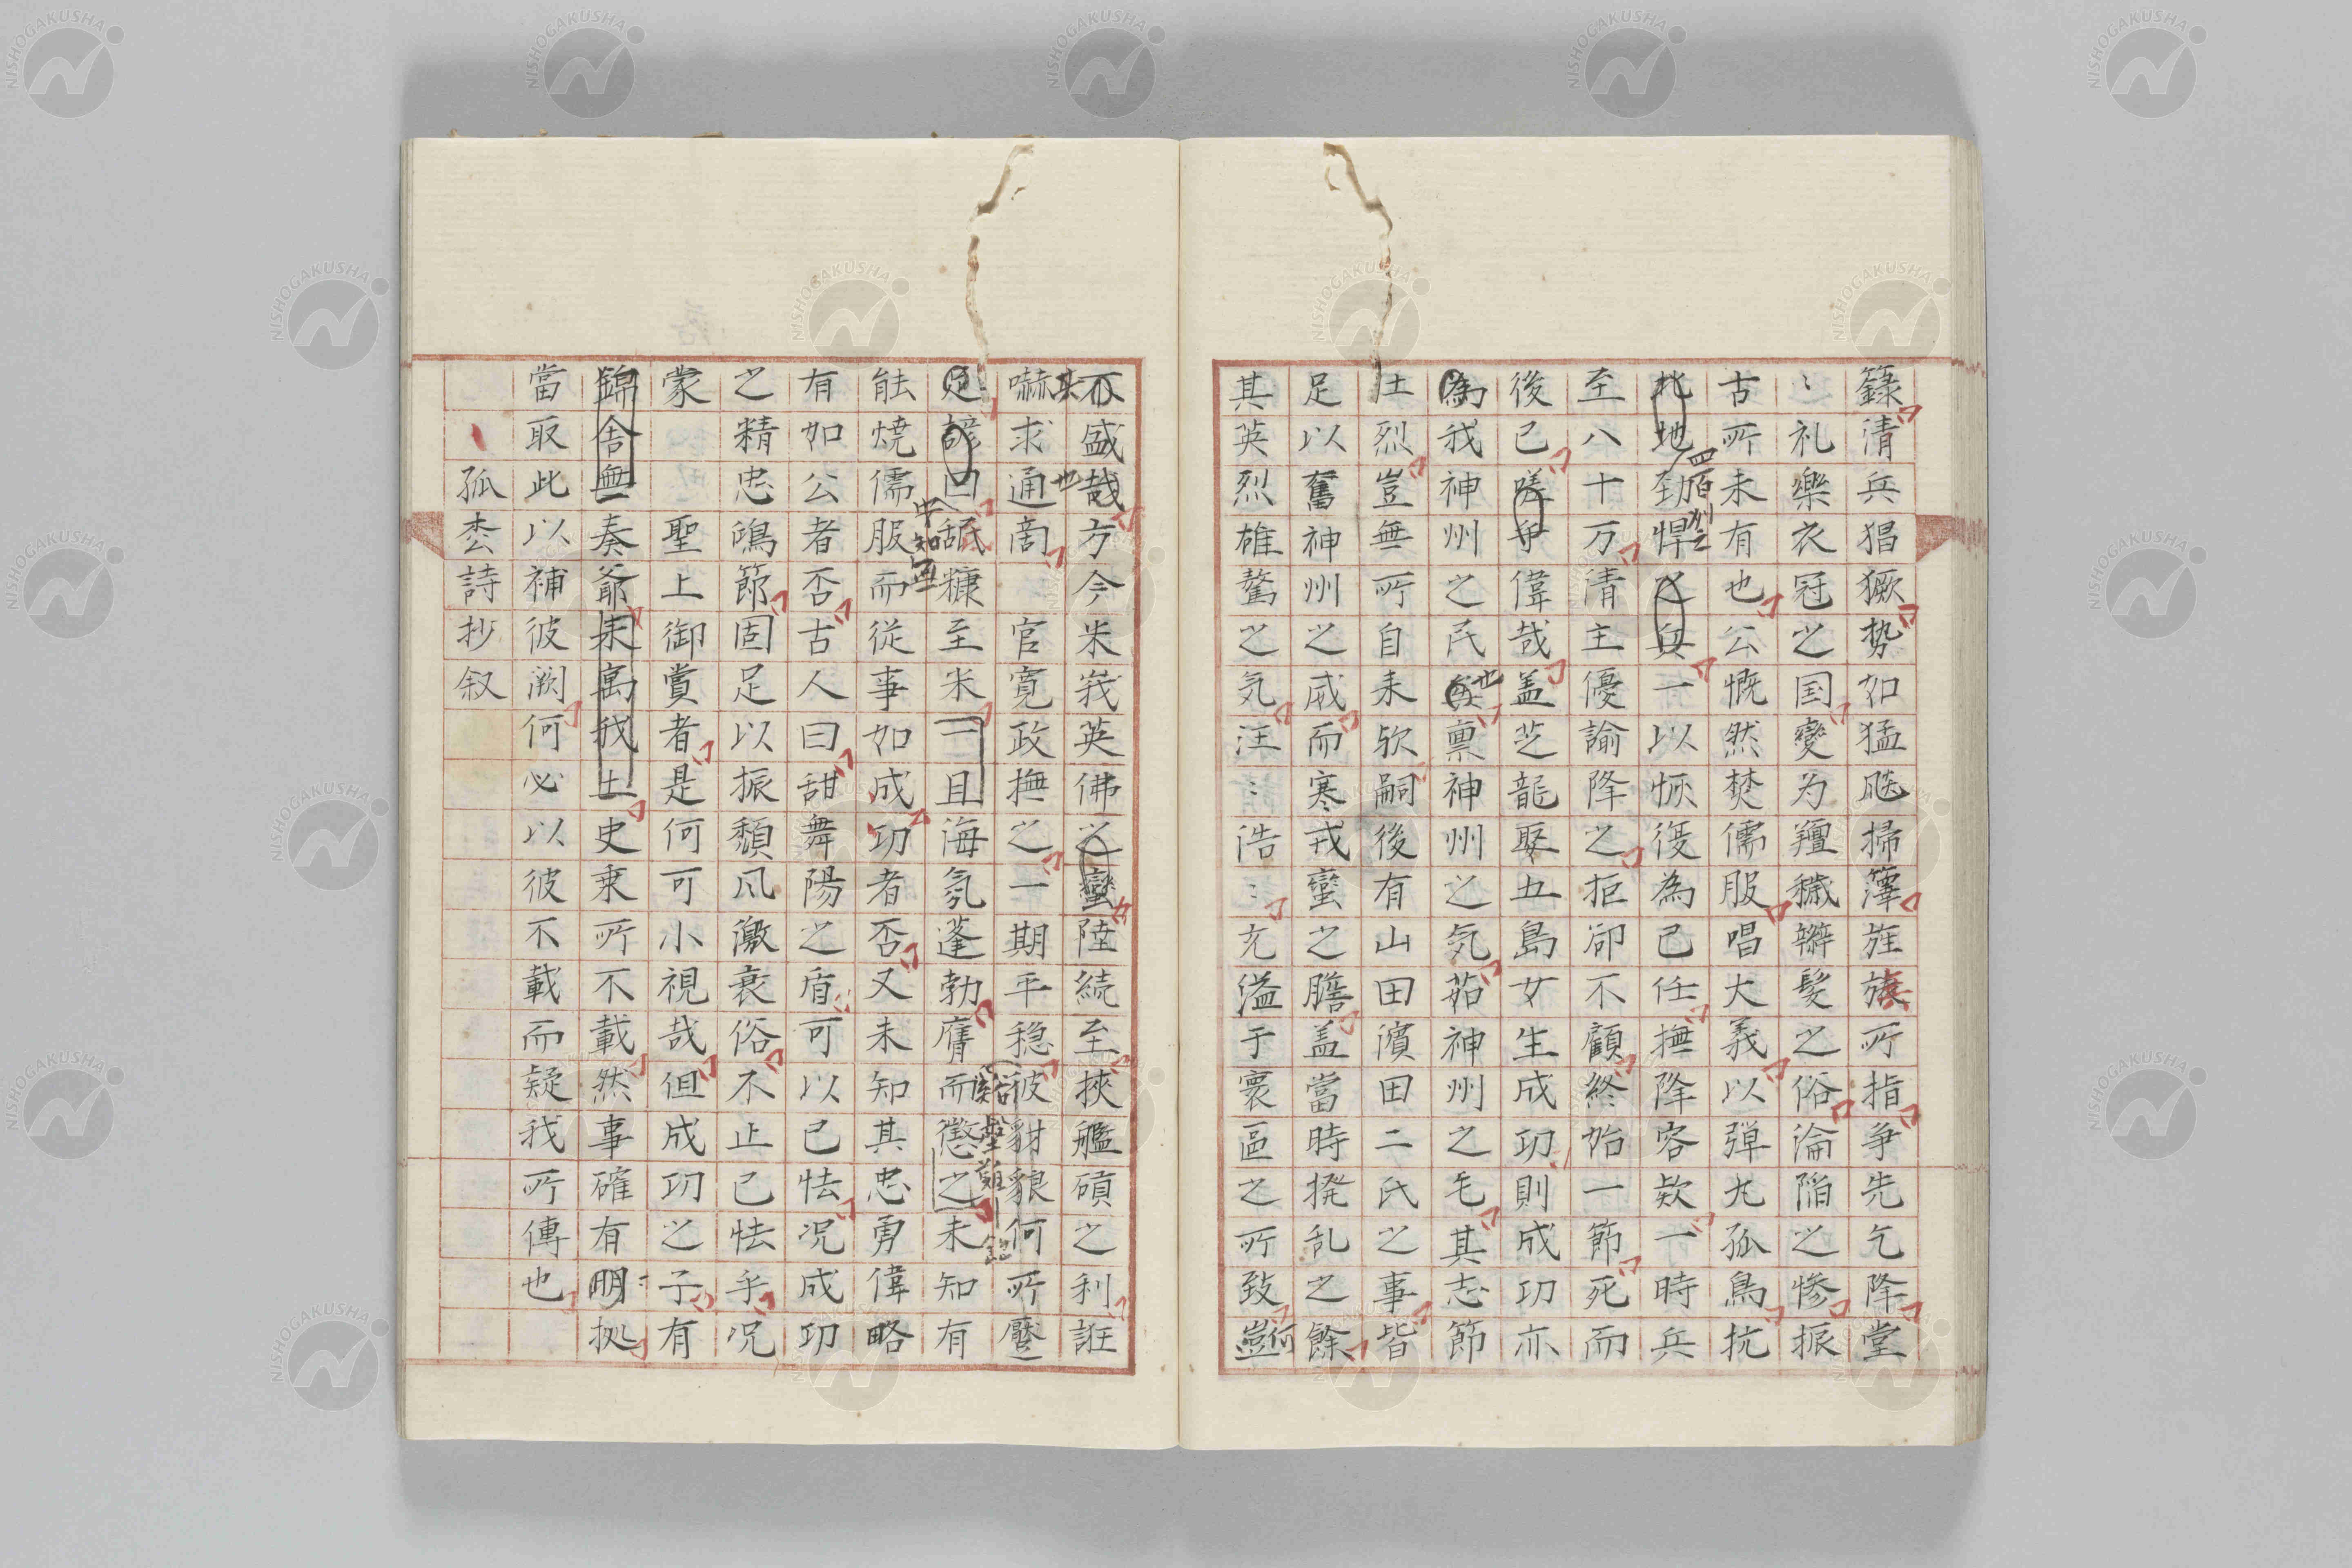 籙清兵猖獗势如猛飈掃籜旌旗所指争先乞降堂
〻礼樂衣冠之国變为羶穢辮髮之俗淪陥之惨振
古所未有也公慨然焚儒服唱大義以弾丸孤島抗
北地劲悍之兵一以恢復為己任撫降容欵一時兵
四百州之
至八十万清主優諭降之拒卻不顧終始一節死而
後已嗟乎偉哉盖芝龍娶五島女生成功則成功亦
為我神州之民禀神州之気茹神州之毛其志節
也
土烈豈無所自来欤嗣後有山田濱田二氏之事皆
足以奮神州之威而寒戎蛮之膽盖當時撥乱之餘
其英烈雄驁之気汪〻浩〻充溢于寰區之所致豈
何
不盛哉方今米峩英佛之蠻陸続至挾艦磧之利誑
其
也
嚇求通啇官寛政撫之一期平稳彼豺貌何所饜
谿壑難
足諺曰舐糠至米一旦海氛蓬勃膺而懲之未知有
中知
能焼儒服而従事如成功者否又未知其忠勇偉略
有如公者否古人曰甜舞陽之盾可以已怯况成功
之精忠鴻節固足以振頽风激衰俗不止已怯乎况
蒙聖上御賞者是何可小視哉但成功之子有
錦舎無奏爺来寓我土史乗所不載然事確有明拠
當取此以補彼闕何必以彼不載而疑我所傳也
孤枩詩抄叙
NISHOGAKUSHA